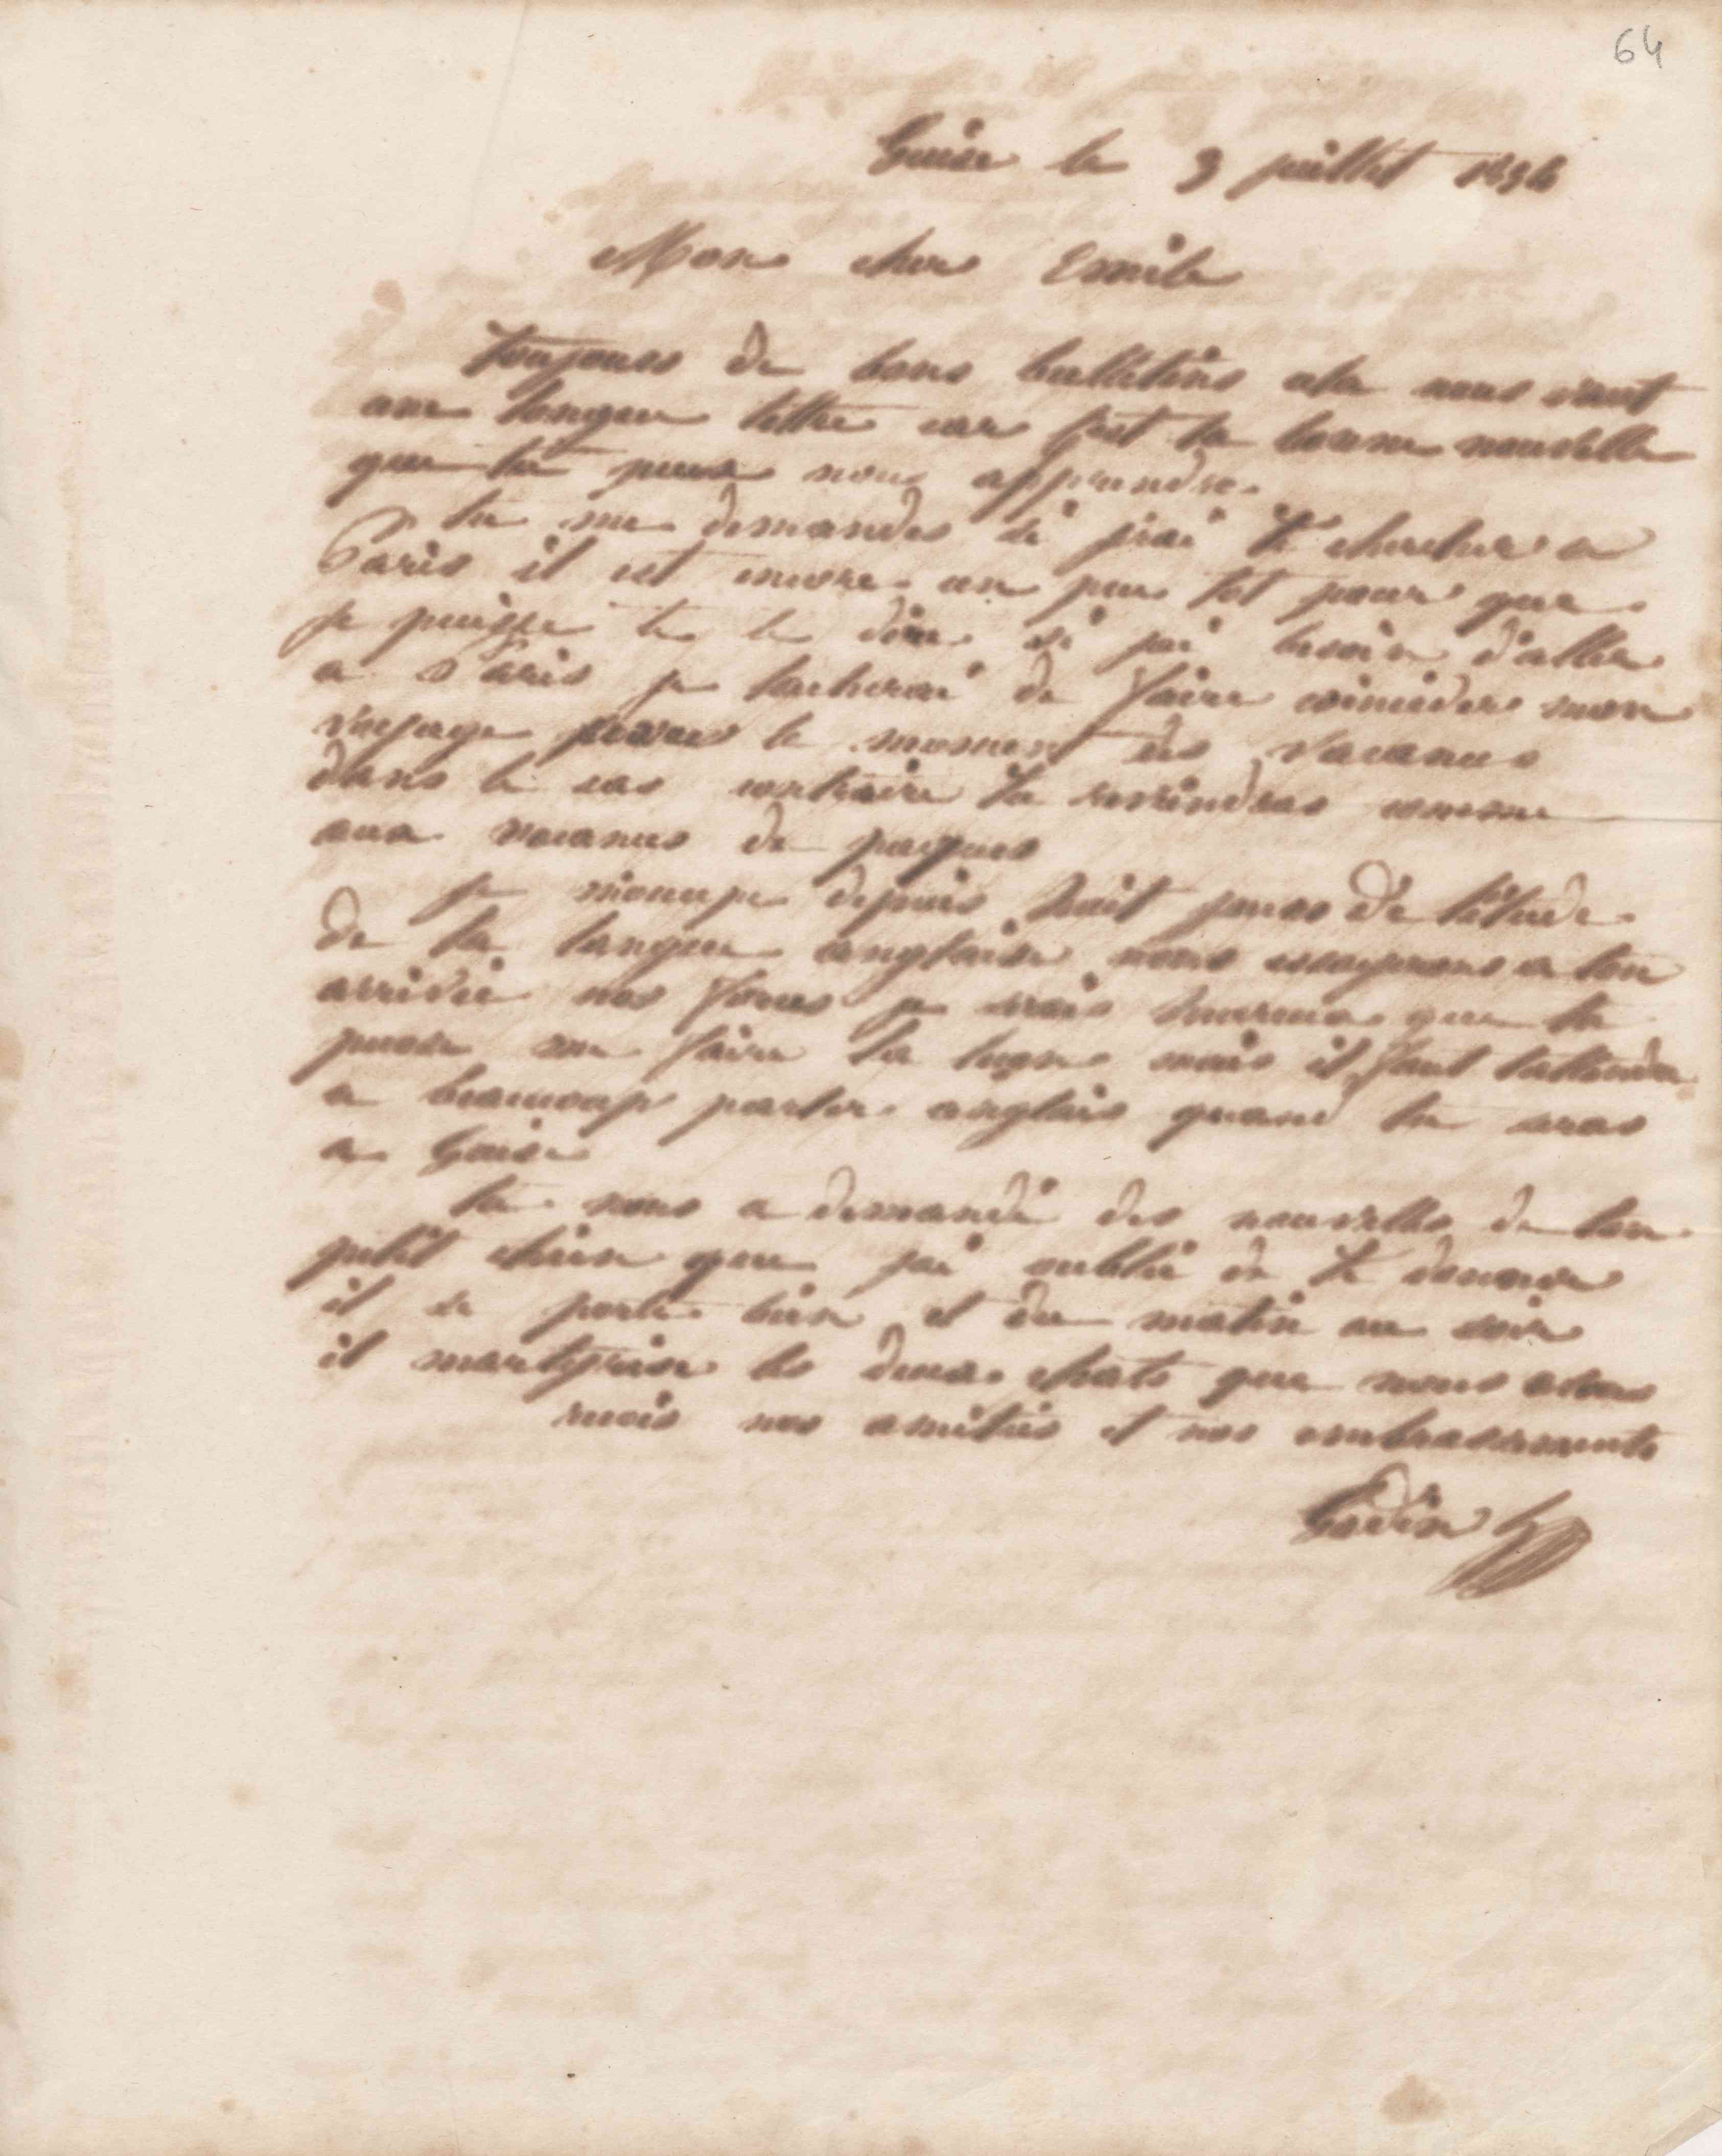 64
Guise le 9 juillet 1856
Mon cher Emile
toujours de bons bulletins cela nous vaut
une longue lettre car c'est la bonne nouvelle
que tu peux nous apprendre.
tu me demandes si j'irai te chercher a
Paris il est encore un peu tot pour que
je puisse te le dire si j'ai besoin d'aller
a Paris je tacherai de faire coincider mon
voyage pour le moment des vacances
dans le cas contraire tu reviendras comme
aux vacances de paques
je m'occupe depuis huit jours de l'étude
de la langue anglaise nous essayerons a ton
arrivée nos forces je serais heureux que tu
puisse me faire la leçon mais il faut t'attendre
a beaucoup parler anglais quand tu seras
a Guise
tu nous a demandé des nouvelles de ton
petit chien que j'ai oublié de te donner
il se porte bien et du matin au soir
il martyrise les deux chats que nous avons
reçois nos amitiés et nos embrassements
Godin